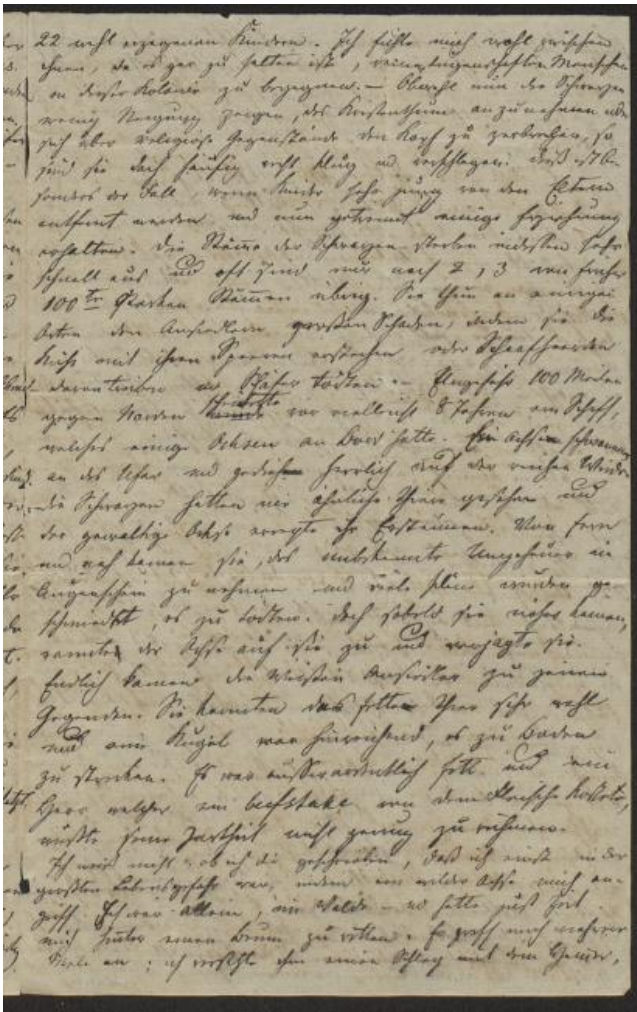 22 wohl erzogenen Kindern. Ich fühle mich wohl zwischen
ihnen, da es gar zu selten ist, Menschen
in dieser Kolonie zu begegnen. – Obwohl nun die Schwarzen
wenig Neigung zeigen, das Kristenthum anzunehmen oder
sich über religiöse Gegenstände den Kopf zu zerbrechen, so
sind sie doch häufig recht klug und verschlagen; dieß ist be-
sonders der Fall, wenn Kinder sehr jung von den Eltern
entfernt werden und nun getrennt einige Erziehung
erhalten. Die Stämme der Schwarzen sterben indessen sehr
schnell aus und oft sind nur noch 2, 3 von früher
100 starken Stämmen übrig. Sie thun an einigen
Orten den Ansiedlern großen Schaden, indem sie die
Kühe mit ihren Speeren erstechen oder Schaafheerden
davontreiben und Schäfer tödten. – Ungefähr 100 Meilen
gegen Norden vor vielleicht 8 Jahren ein Schiff,
welches einige Ochsen an Bord hatte. Ein Ochse schwamm
an das Ufer und gedieh herrlich auf der reichen Weide
die Schwarzen hatten nie ähnliche Thiere gesehen und
der gewaltige Ochse erregte ihr Erstaunen. Von fern
und nah kamen sie, das unbekannte Ungeheuer in
Augenschein zu nehmen und viele Pläne wurden ge-
schmiedet, es zu tödten. Doch sobald sie näher kamen,
rannte der Ochse auf sie zu und verjagte sie.
Endlich kamen die Weissen Ansiedler zu jenen
Gegenden. Sie kannten das fette Thier sehr wohl
und eine Kugel war hinreichend, es zu Boden
zu strecken. Es war ausserordentlich fett und ein
Herr welcher ein beefstake von dem Fleische kostete,
wußte seine Zartheit nicht genug zu rühmen.
Ich weiß nicht, ob ich dir geschrieben, daß ich einst in der
größten Lebensgefahr war, indem ein wilder Ochse mich an-
griff. Ich war allein, im Walde – und hatte just Zeit
mich hinter einen Baum zu retten. Er griff mich mehrere
Male an; ich versetzte ihm einen Schlag mit dem Hammer,